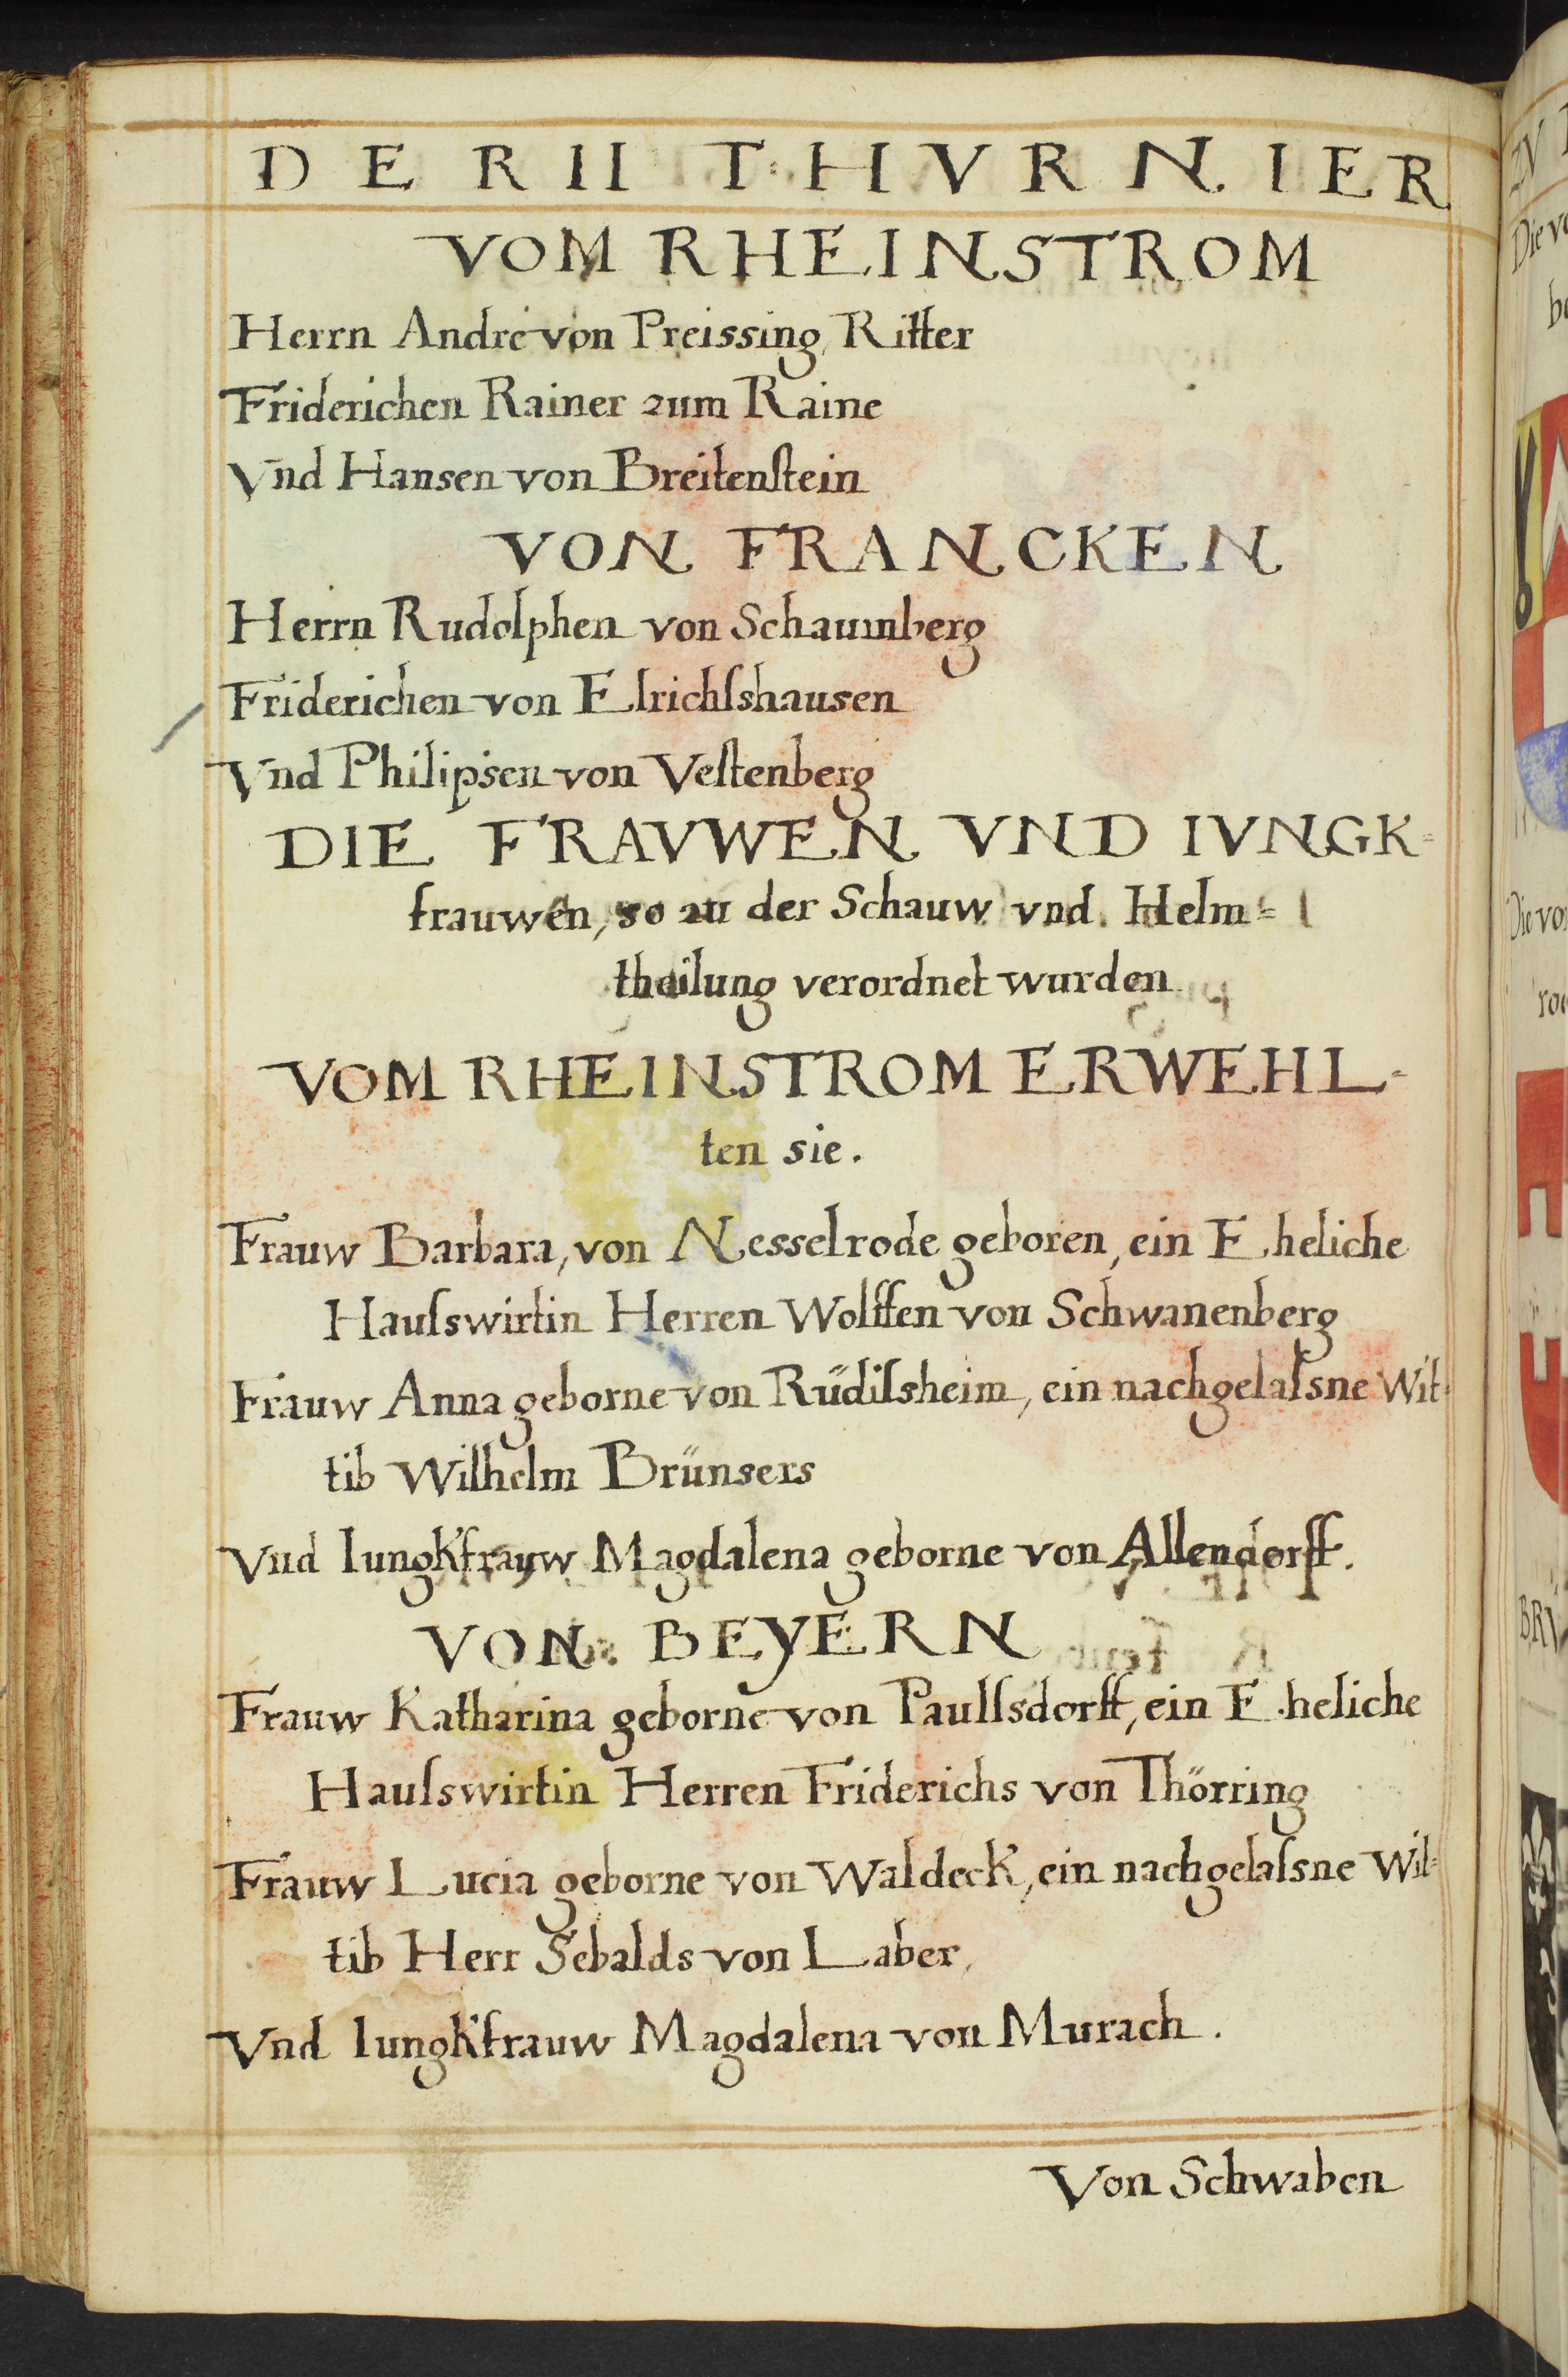 DER II THVRNIER
VOM RHEINSTROM
Herrn Andre von Preissing, Ritter
Friderichen Rainer zum Raine
Vnd Hansen von Breitenſtein
VON FRANCKEN
Herrn Rudolphen von Schaumberg
Friderichen von Elrichſshausen
Vnd Philipsen von Veſtenberg
DIE FRAVWEN VND IVNGK=
frauwen, so zu der Schauw vnd Helm=
theilung verordnet wurden
VOM RHEINSTROM ERWEHL=
ten sie.
Frauw Barbara, von Nesselrode geboren, ein Eheliche
Hauſswirtin Herren Wolffen von Schwanenberg
Frauw Anna geborne von Rüdiſsheim, ein nachgelaſsne Wit=
tib Wilhelm Brünsers
Vnd Iungkfrauw Magdalena geborne von Allendorff.
VON BEYERN
Frauw Katharina geborne von Paulſsdorff, ein Eheliche
Hauſswirtin Herren Friderichs von Thörring
Frauw Lucia geborne von Waldeck, ein nachgelaſsne Wit=
tib Herr Sebalds von Laber,
Vnd Iungkfrauw Magdalena von Murach.
Von Schwaben